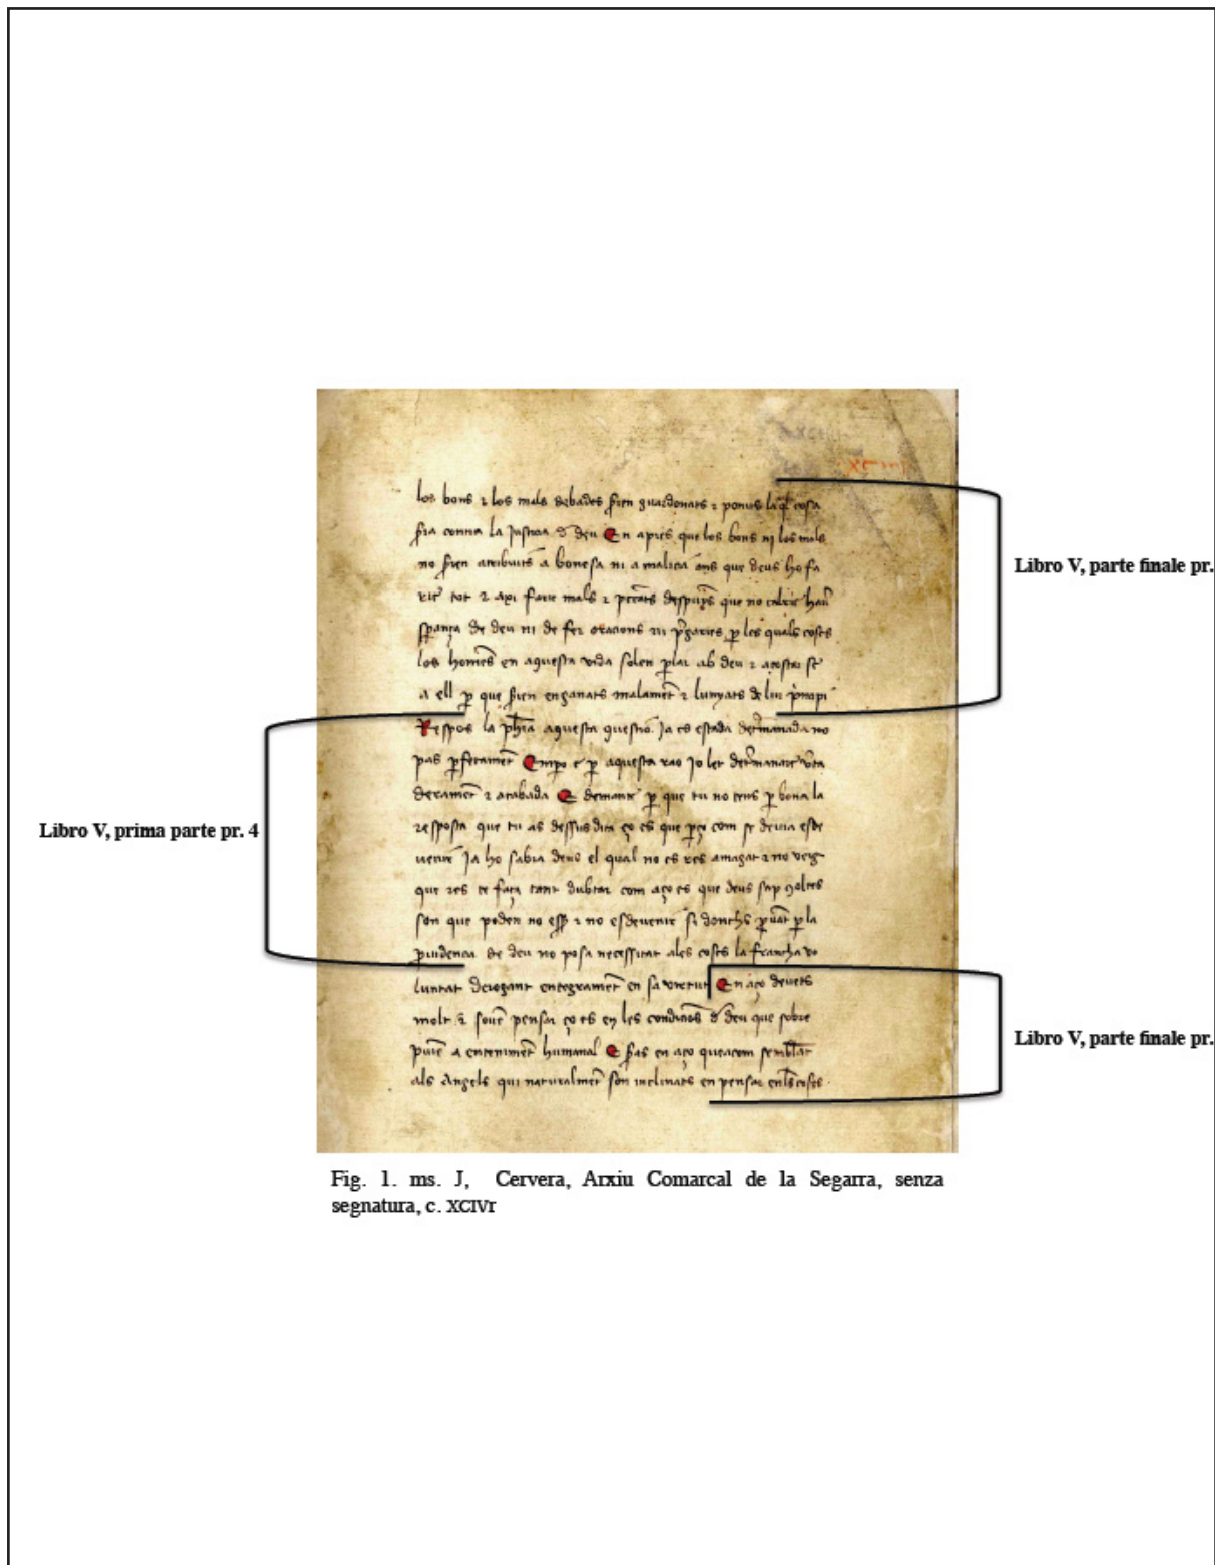 xciiii
los bons ⁊ los mals debades serien guardonats ⁊ ponits la ql̄ cosa
seria contra la Justicia d deu En apres que los bons ni los mals
no serien atribuits a bonesa ni a malicia ans que deus ho fa
tot ⁊ axi faria mals ⁊ peccats despuys que no calria hau
sperança de deu ni de fer oracions ni p̄garies p les quals coses
los homēs en aquesta vida solen plar ab deu ⁊ acostar se
a ell p que serien enganats malamēt ⁊ lunyats de lur p̄ncipi
Respos la ph̄ia aquesta questio Ja es estada det̄manada no
pas pfetamēt Empo e p aquesta rao Jo let det̄manare
derament ⁊ acabada E demante p que tu no tens p bona la
resposta que tu as dessus dita ço es que pço com se devia esde
venir Ja ho sabia deus el qual no es res amagat ⁊ no veig
que res te faça tant dubtar com aço es que deus sap moltes
son que poden no esser ⁊ no esdevenir si donchs p la
puidencia de deu no posa necessitat ales coses la francha vo
luntat entegramēt en sa virtut En aço devets
molt ⁊ sovē pensar ço es en les condicions d deu que sobre
puiē a entenimēt humanal E en aço semblāt
als Angels qui naturalmēt son inclinats en pensar coses
Libro V, parte finale pr.
Libro V, prima parte pr. 4
Libro V, parte finale pr.
Fig. 1. ms. J, Cervera, Arxiu Comarcal de la Segarra, senza
segnatura, c. XCIVr